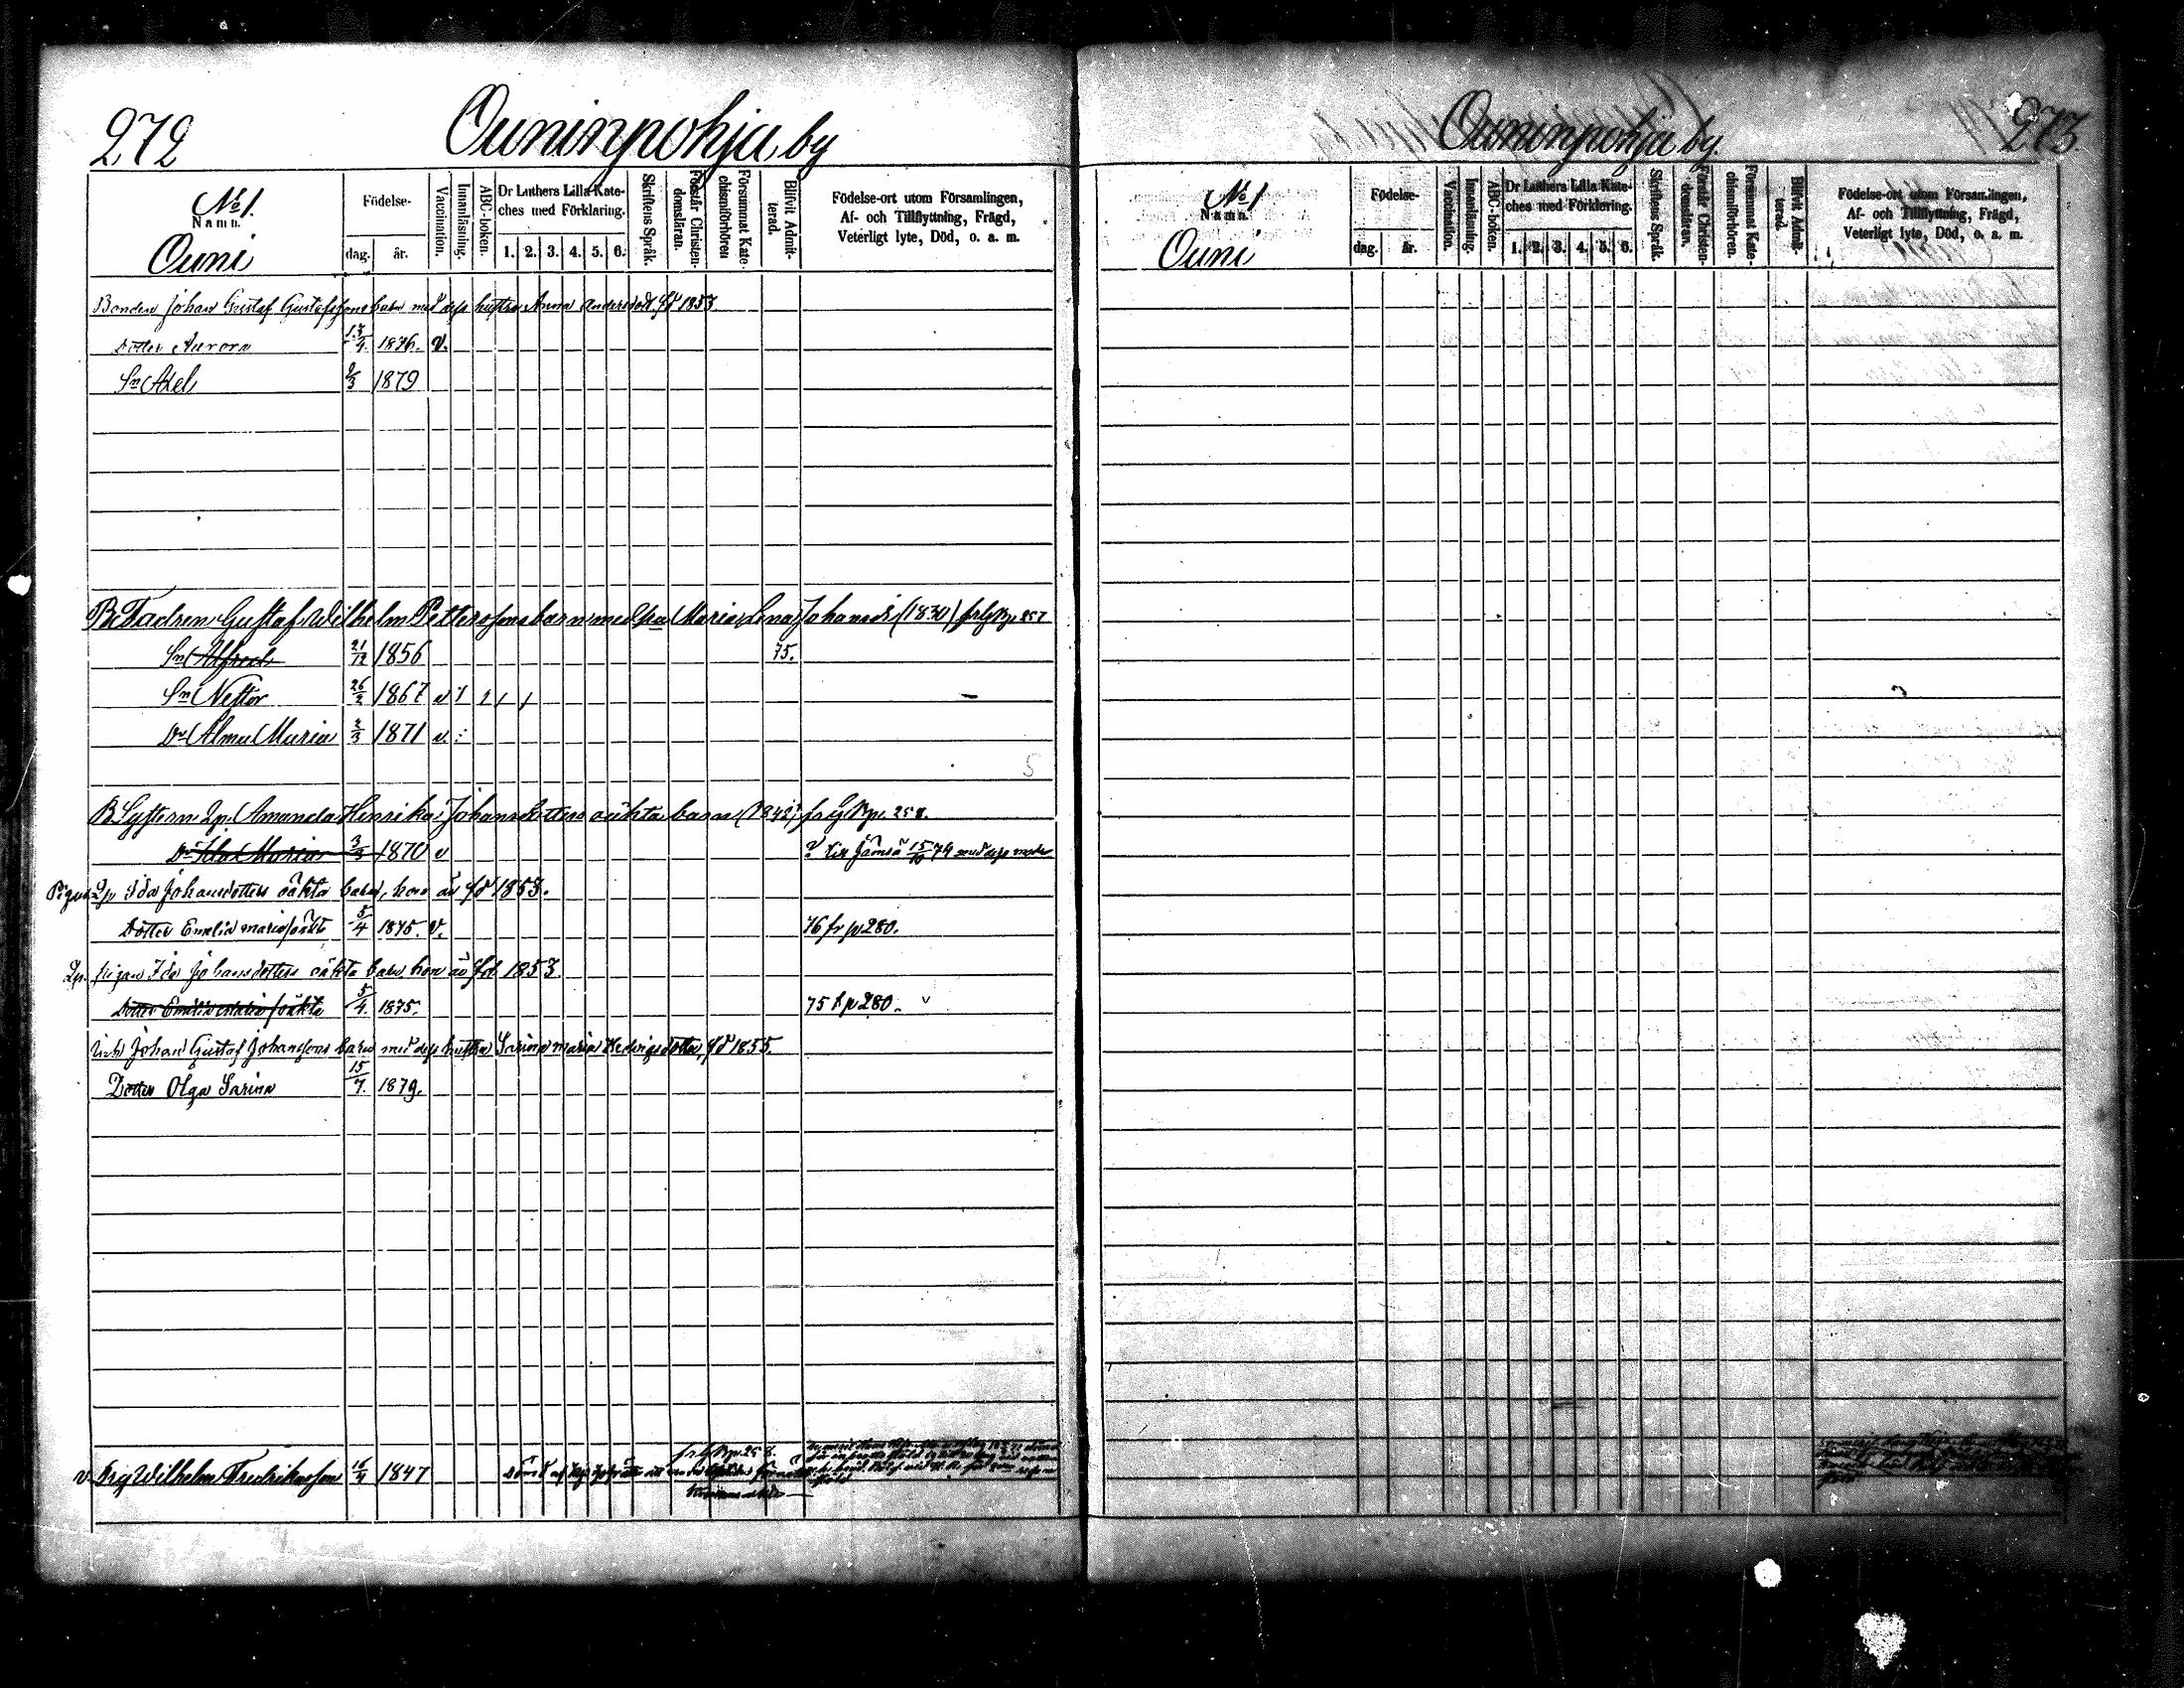 272
Ouninpohja by
No 1.
Namn.
Ouni
Födelse-
dag.
år.
Vaccination.
Innanläsning.
ABC-boken.
Dr Luthers Lilla Kate-
ches med Förklaring.
1. 2. 3. 4. 5. 6.
Skriftens Språk.
Förstår Christen-
domsläran.
Försummat Kate-
chismiförhören
Blifvit Admit-
terad.
Födelse-ort utom Församlingen,
Af- och Tillflyttning, Frägd,
Veterligt lyte, Död, o. a. m.
Bonden Johan Gustaf Gustafssons barn med dess hustru Anna Andersdot. fd 1853.
Dotter Aurora 1876. v.
Sn Axel 2/3 1879
B. Fadren Gustaf Wilhelm Petterssons barn med Hu Maria Lena Johansdr (1830)
Sn Alfred 21/12 1856 75.
Sn Nestor 26/2 1867 v
Dr Alma Maria 2/3 1871 v.
B Systern Lp. Amanda Henrika Johansdotters oäkta barn (1842) 258.
Dr Ida Maria 3/3 1870 v till Jämsä 15/10 74 med dess moder
Pigan Lp Ida Johansdotters oäkta barn, hon är fd 1853.
Dotter Emelia Maria oäkta 5/4 1875. v. 76 fr p 280.
Lp. pigan Ida Johansdotters oäkta barn hon är föd. 1853.
Dotter Emelia Maria oäkta 5/4. 1875. 75 t p 280. v
Inh Johan Gustaf Johanssons barn med dess hustru Sarina Maria Hedvigsdotter, fd 1855.
Dotter Olga Sarina 15/7. 1879.
v. Frej Wilhelm Fredriksson 1847
273.
Ouninpohja by.
No 1
Namn.
Ouni
Födelse-
dag.
år.
Vaccination.
Innanläsning.
ABC-boken.
Dr Luthers Lilla Kate-
ches med Förklaring.
1. 2. 3. 4. 5. 6.
Skriftens Språk.
Förstår Christen-
domsläran.
Försummat Kate-
chismiförhören.
Blifvit Admit-
terad.
Födelse-ort utom Församlingen,
Af- och Tillflyttning, Frägd,
Veterligt lyte, Död, o. a. m.